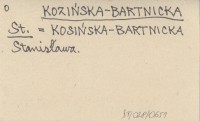 O
KOZIŃSKA-BARTNICKA
St. = KOSIŃSKA-BARTNICKA
Stanisława.